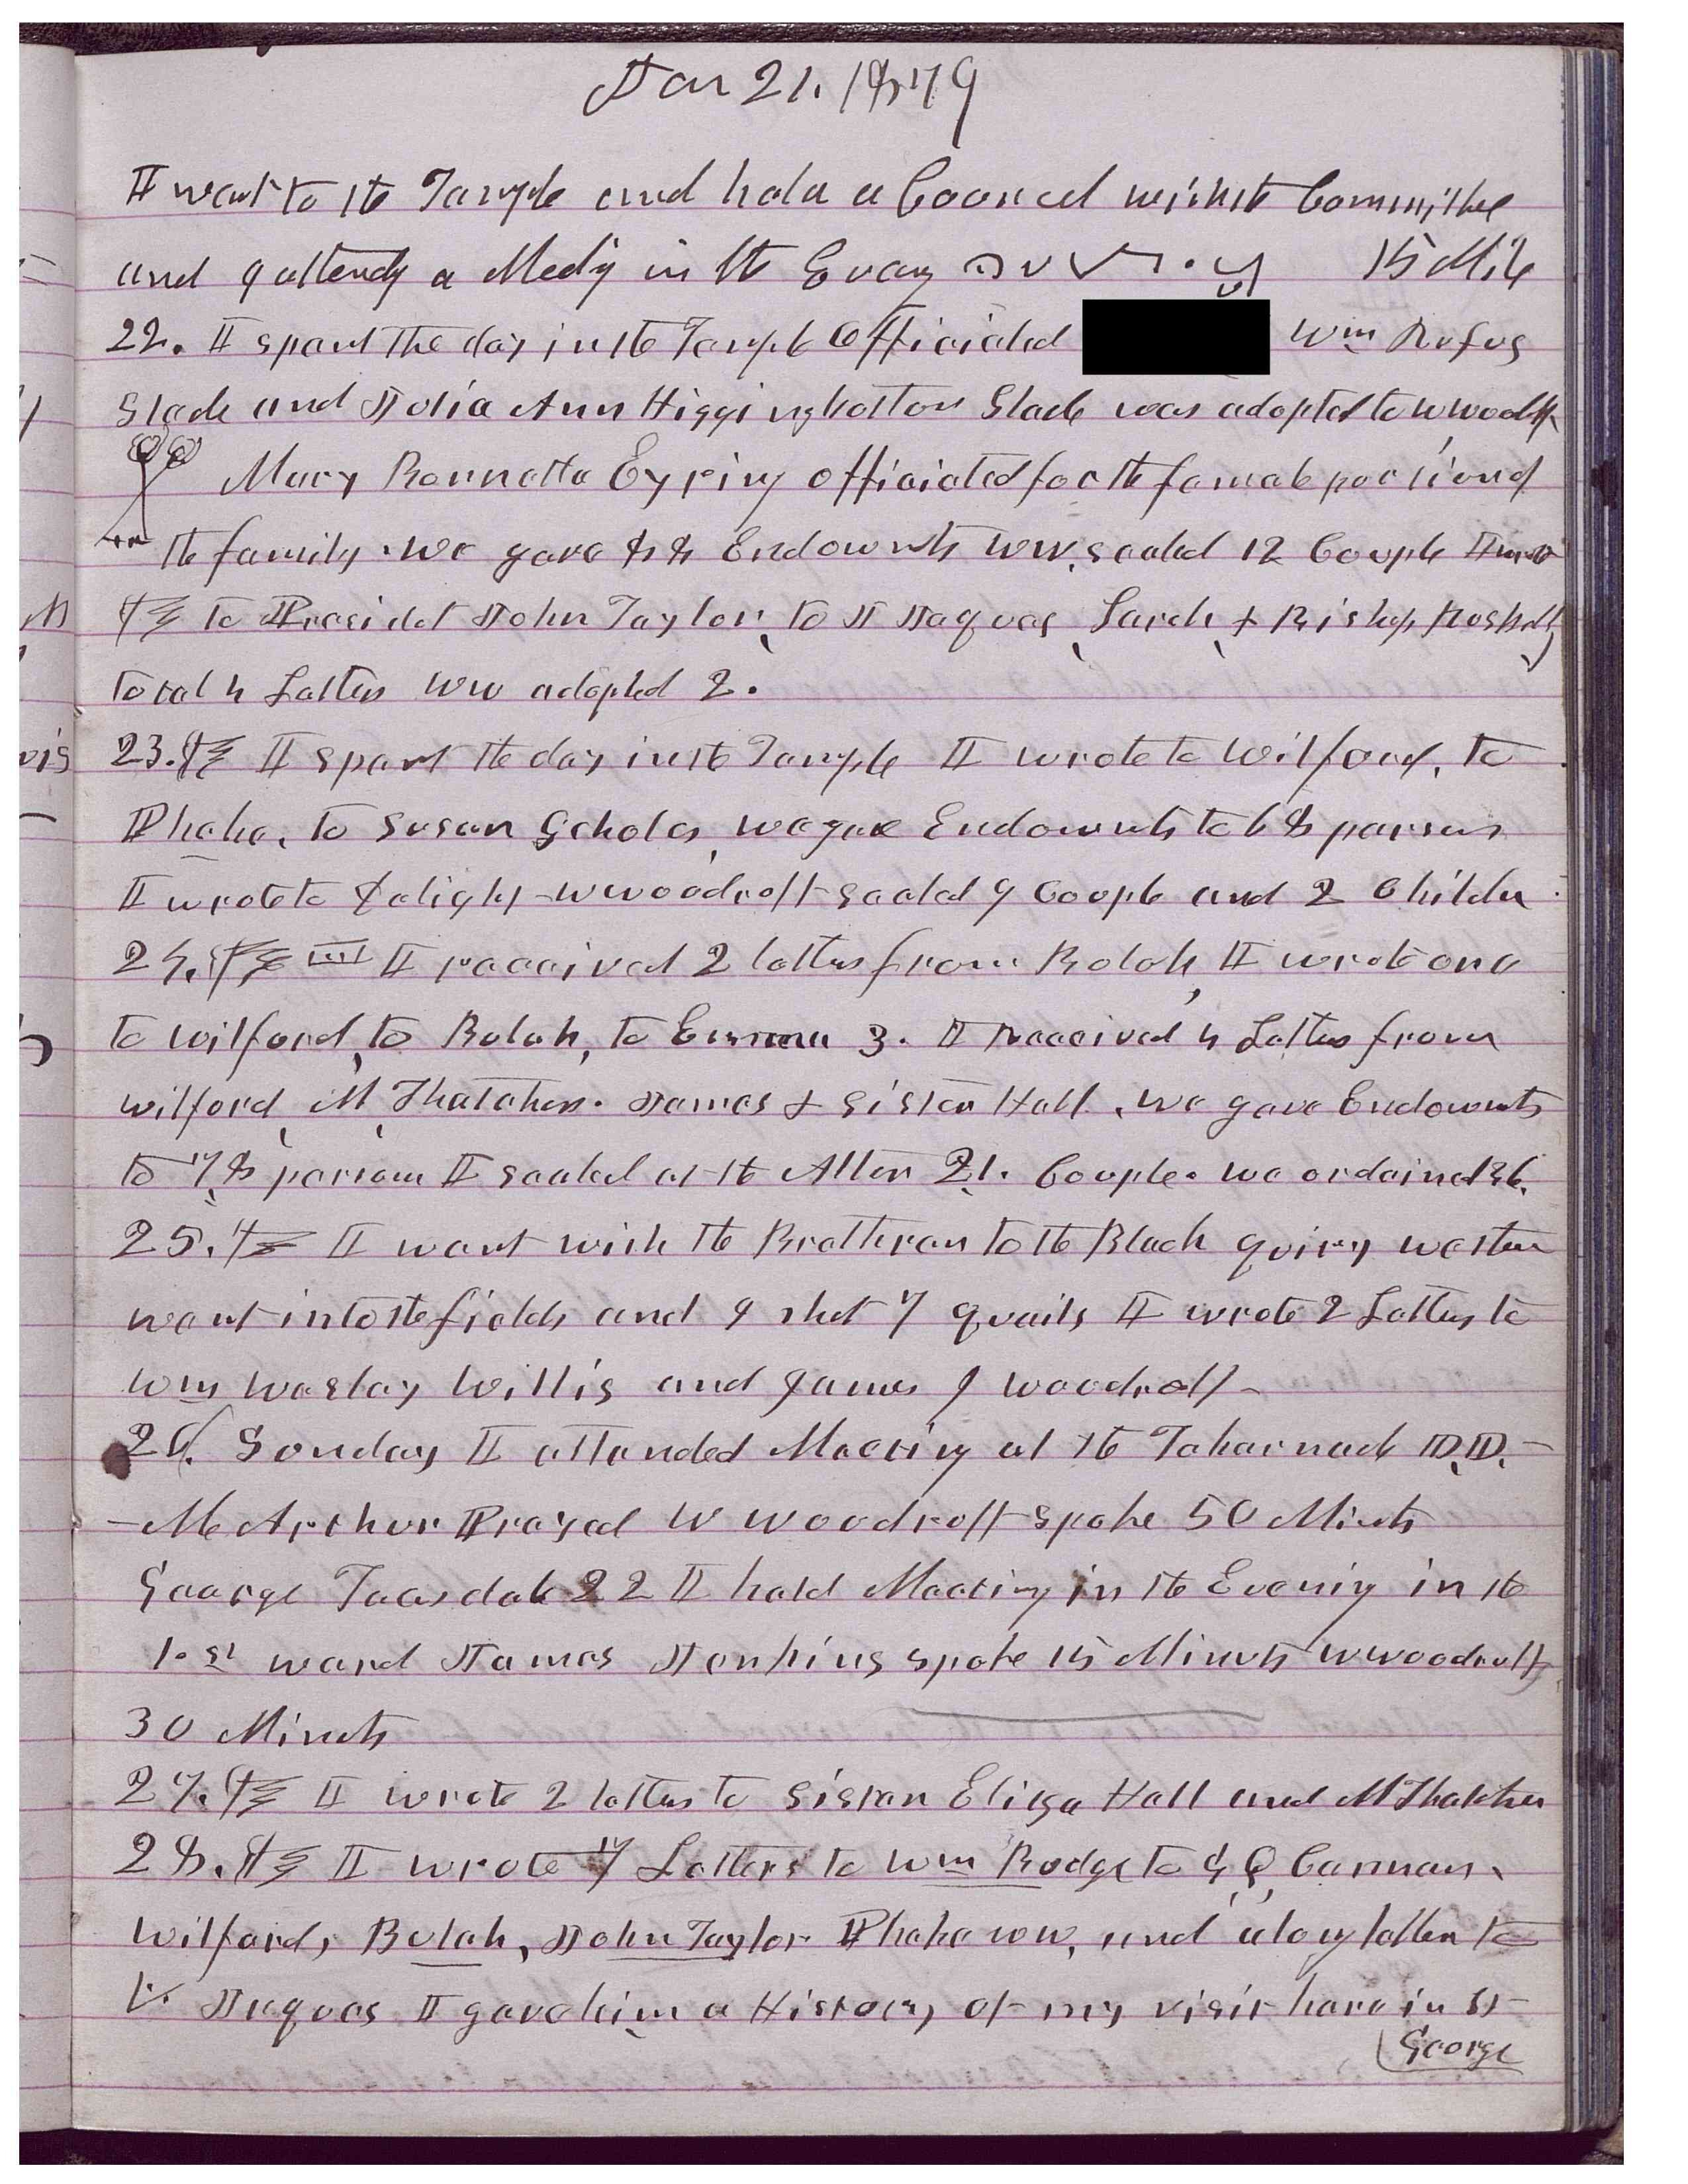 Jan 21. 1879
I went to the Temple and held a Councel with the Committee
and I attended a Meeting in the Evening 15 Mile
22. I spent the day in the Temple Officiated Wm Rufus
Slade and Julia Ann Higginbotton Slade was adopted to W woodruff
Mary Bonnetta Eyring officiated for the female portion of
the family. We gave 88 Endowments WW, sealed 12 Couple I wrote
to Presidet John Taylor, to J Jaques, Sarah, & Bishop
total 4 Letters WW adopted 2.
23. I spent the day in the Temple I wrote to Wilford, to
Phebe, to Susan Scholes, we gave Endowments to 68 persons
I wrote to W woodruff sealed 9 Couple and 2 Childn
24. I received 2 letters from Bulah, I wrote one
to Wilford, to Bulah, to Emma 3. I Received 4 Letters from
Wilford, M, Thatcher. James & Sister Hall. We gave Endowments
to 78 persons I sealed at the Alter 21. Couple. we ordained 36.
25. I went with the Brethren to the Black
went into the fields and I shot 7 quails I wrote 2 Letters to
Wm Wesley Willis and James J Woodruff
26. Sunday I attended Meeting at the Tabernacle D.D.
McArthur Prayed W Woodruff spoke 50 Minuts
George Teasdale 22 I held Meeting in the Evening in the
1.st ward James Jenkins spoke 15 Minuts W woodruff
30 Minuts
27. I wrote 2 letters to Sister Eliza Hall and M Thatcher
28. I wrote 7 Letters to Wm Budge to G Q, Cannan,
Wilford, Bulah, John Taylor Phebe WW, and a long letter to
Jaques I gave him a History of my visit here in St
George